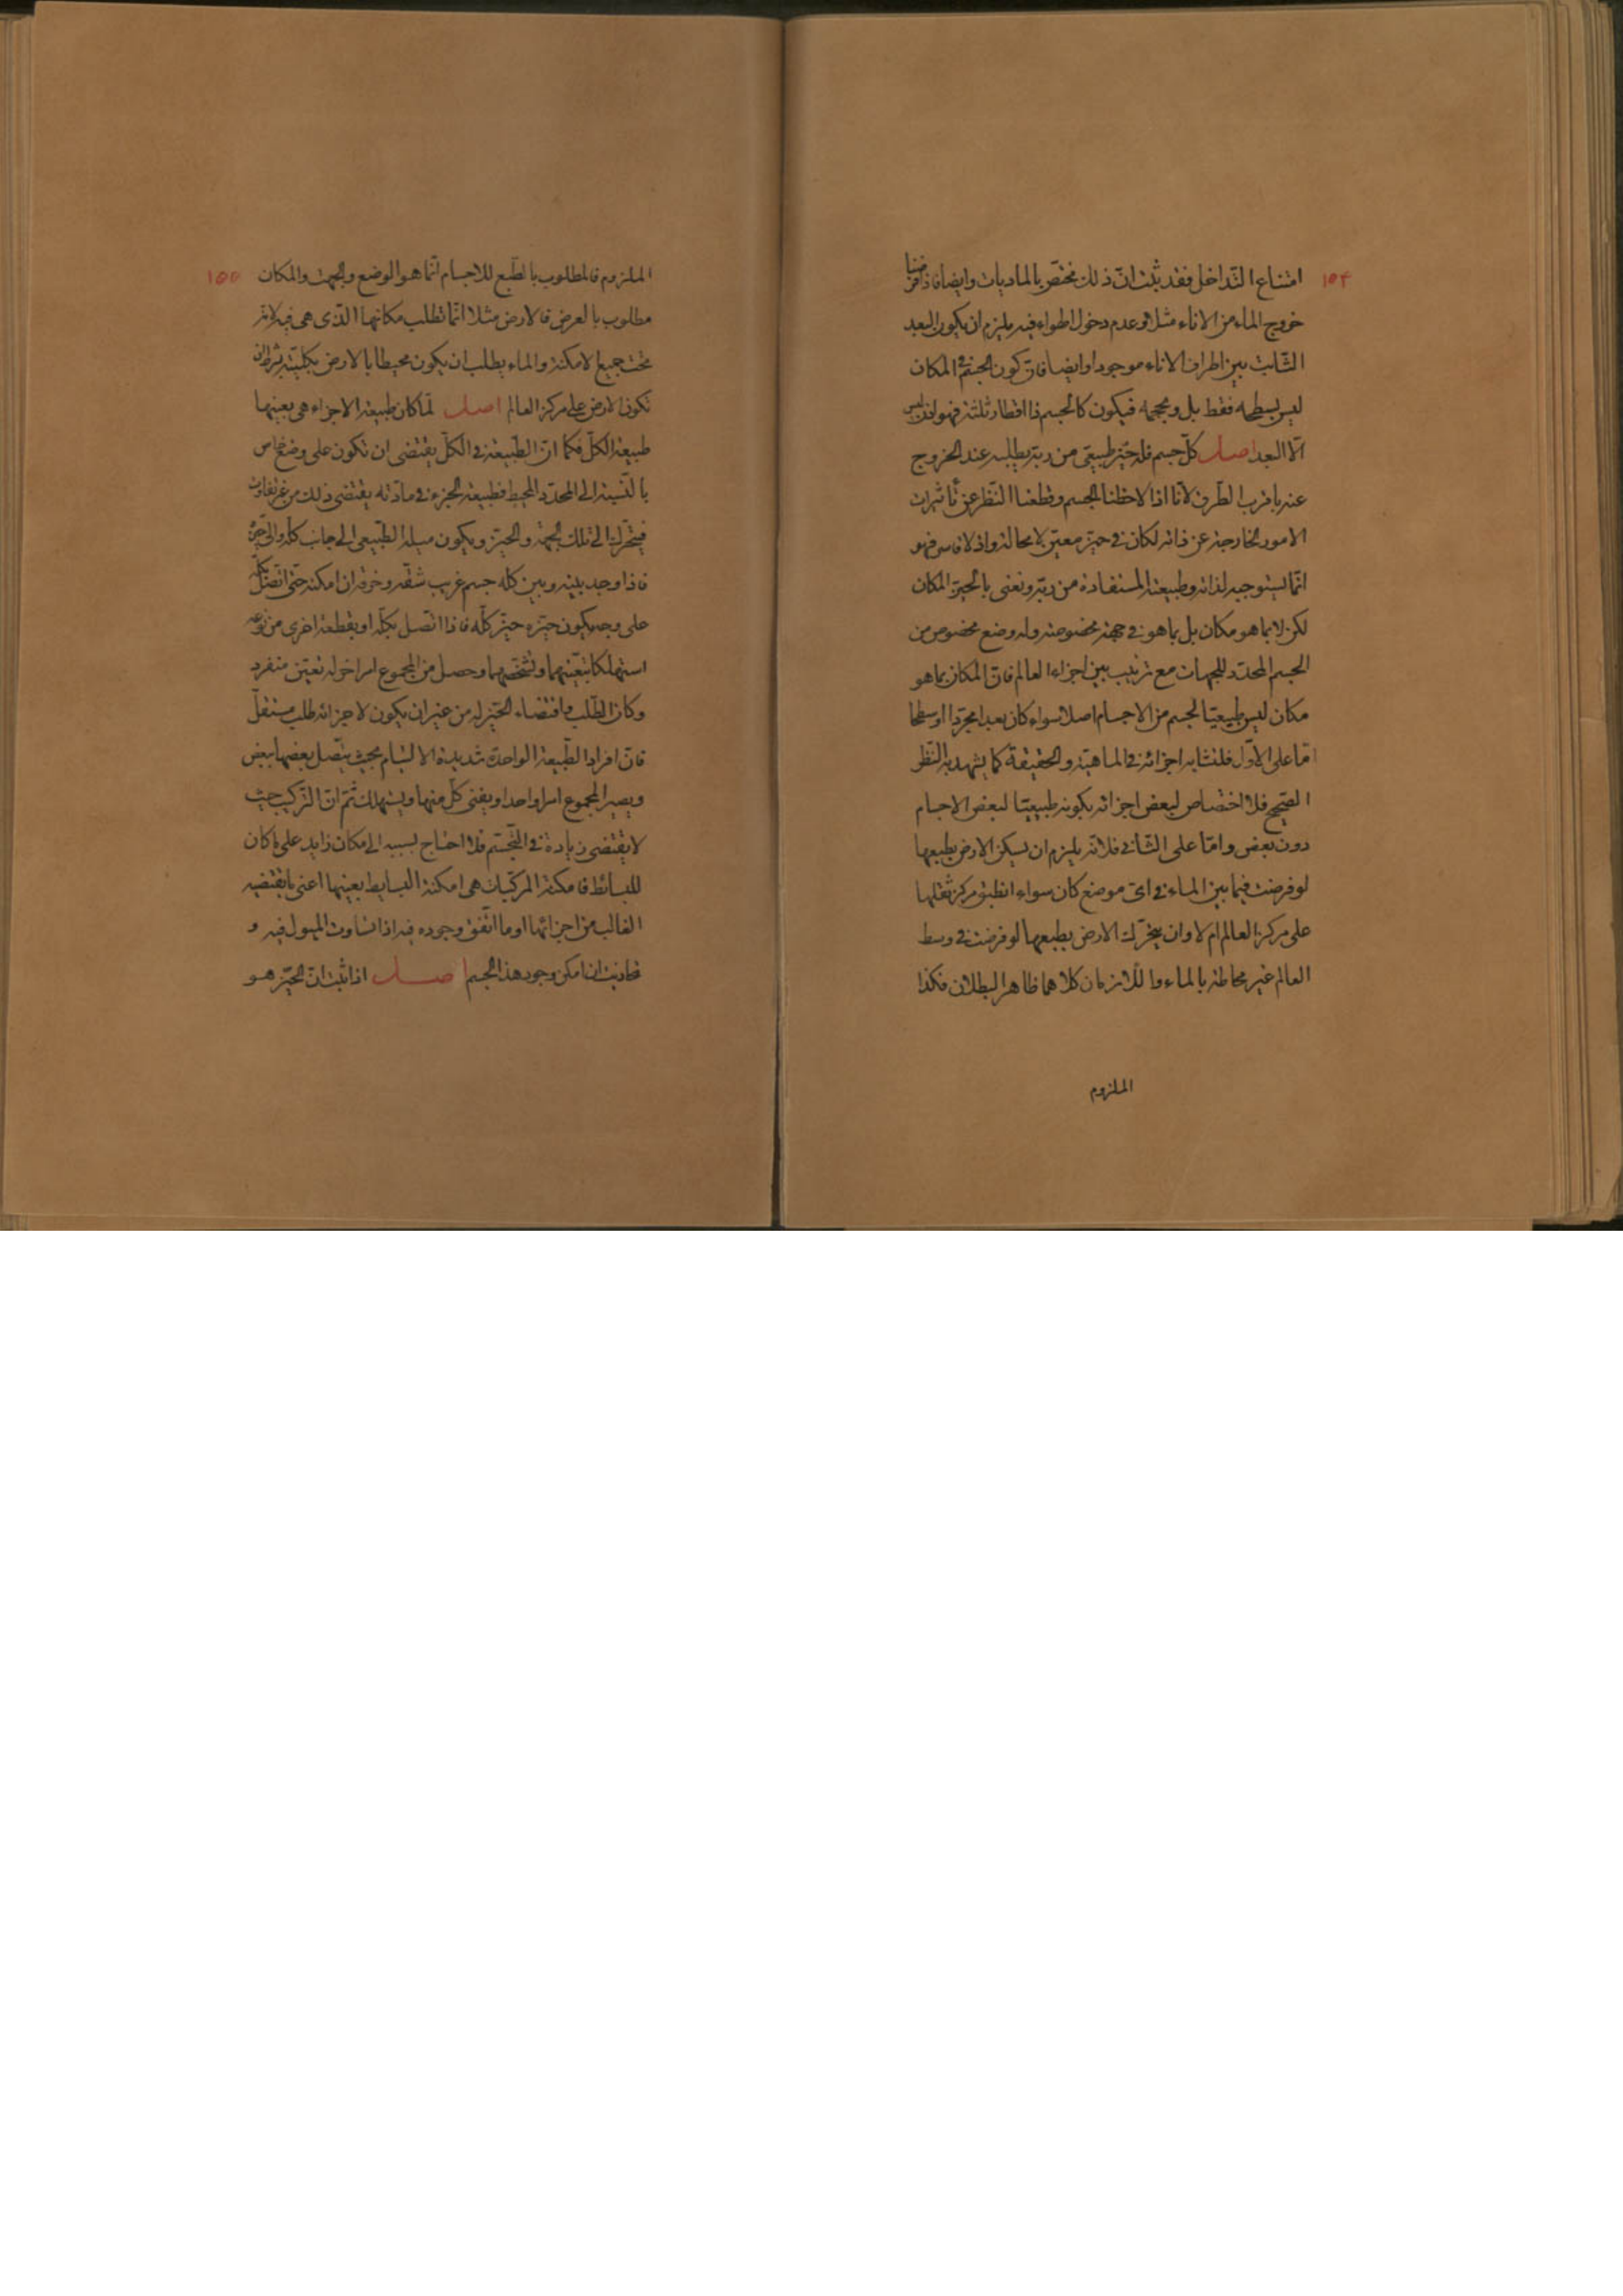 ١٥٤
امتناع التّداخل فقد ثبت انّ ذلك مختصّ بالماديات وايضا فاذا فرضنا
خروج الماء من الاناء مثلا وعدم دخول الهواء فيه يلزم ان يكون البعد
الثّابت بين اطراف الاناء موجودا وايضا فانّ كون الجسم فى المكان
ليس بسطحه فقط بل وبحجمه فيكون كالجسم ذا اقطار ثلثة فهو اذن ليس
الّا البعد اصل كلّ جسم فله حيّز طبيعى من ربّه يطلبه عند الخروج
عنه باقرب الطّرق لانّا اذا لاحظنا الجسم وقطعنا النّظر عن تأثيرات
الامور الخارجة عن ذاته لكان فى حيّز معيّن لا محالة واذ لا قاسر فهو
انّما يستوجبه لذاته وطبيعته المستفادة من ربّه ونعنى بالحيّز المكان
لكن لا بما هو مكان بل بما هو فى جهة مخصوصة وله وضع مخصوص من
الجسم المحدّد للجهات مع ترتيب بين اجزاء العالم فانّ المكان بما هو
مكان ليس طبيعيّا لجسم من الاجسام اصلا سواء كان بعدا مجرّدا او سطحا
امّا على الاوّل فلتشابه اجزائه فى الماهيّة والحقيقة كما يشهد به النّظر
الصّحيح فلا اختصاص لبعض اجزائه بكونه طبيعيّا لبعض الاجسام
دون بعض وامّا على الثّانى فلانّه يلزم ان يسكن الارض بطبعها
لو فرضت فيما بين الماء فى اىّ موضع كان سواء انطبق مركز ثقلها
على مركز العالم ام لا وان يتحرّك الارض بطبعها لو فرضت فى وسط
العالم غير محاطة بالماء واللّازمان كلاهما ظاهر البطلان فكذا
الملزوم
١٥٥
الملزوم فالمطلوب بالطّبع للاجسام انّما هو الوضع والجهة والمكان
مطلوب بالعرض فالارض مثلا انّما تطلب مكانها الّذى هى فيه لانّه
تحت جميع الامكنة والماء يطلب ان يكون محيطا بالارض بكليّته بشرط ان
تكون الارض على مركز العالم اصل لمّا كان طبيعة الاجزاء هى بعينها
طبيعة الكلّ فكما انّ الطّبيعة فى الكلّ يقتضى ان تكون على وضع خاص
بالنّسبة الى المحدّد المحيط فطبيعة الجزء فى مادّته يقتضى ذلك من غير تفاوت
فيتحرّك الى تلك الجهة والحيّز ويكون ميله الطّبيعى الى جانب كلّه والى حيّزه
فاذا وجد بينه وبين كلّه جسم غريب شقّه وخرقه ان امكنه حتّى اتّصل بكلّه
على وجه يكون حيّزه حيّز كلّه فاذا اتّصل بكلّه او بقطعة اخرى من نوعه
استهلكا بتعيّنهما وتشخّصهما وحصل من المجموع امر اخر له تعيّن متفرد
وكان الطّلب واقتضاء الحيّز له من غير ان يكون لاجزائه طلب مستقلّ
فانّ افراد الطّبيعة الواحدة شديدة الالتيام بحيث يتّصل بعضها ببعض
ويصير المجموع امرا واحدا ويفنى كلّ منها ويستهلك ثمّ انّ التّركيب حيث
لا يقتضى زيادة فى التّجسّم فلا احتاج بسببه الى مكان زايد على ما كان
للبسائط فامكنة المركّبات هى امكنة البسايط بعينها اعنى ما يقتضيه
الغالب من اجزائها او ما اتّفق وجوده فيه اذا تساوت الميول فيه و
تحاذيت ان امكن وجود هذا الجسم اصل اذا ثبت انّ الحيّز هو